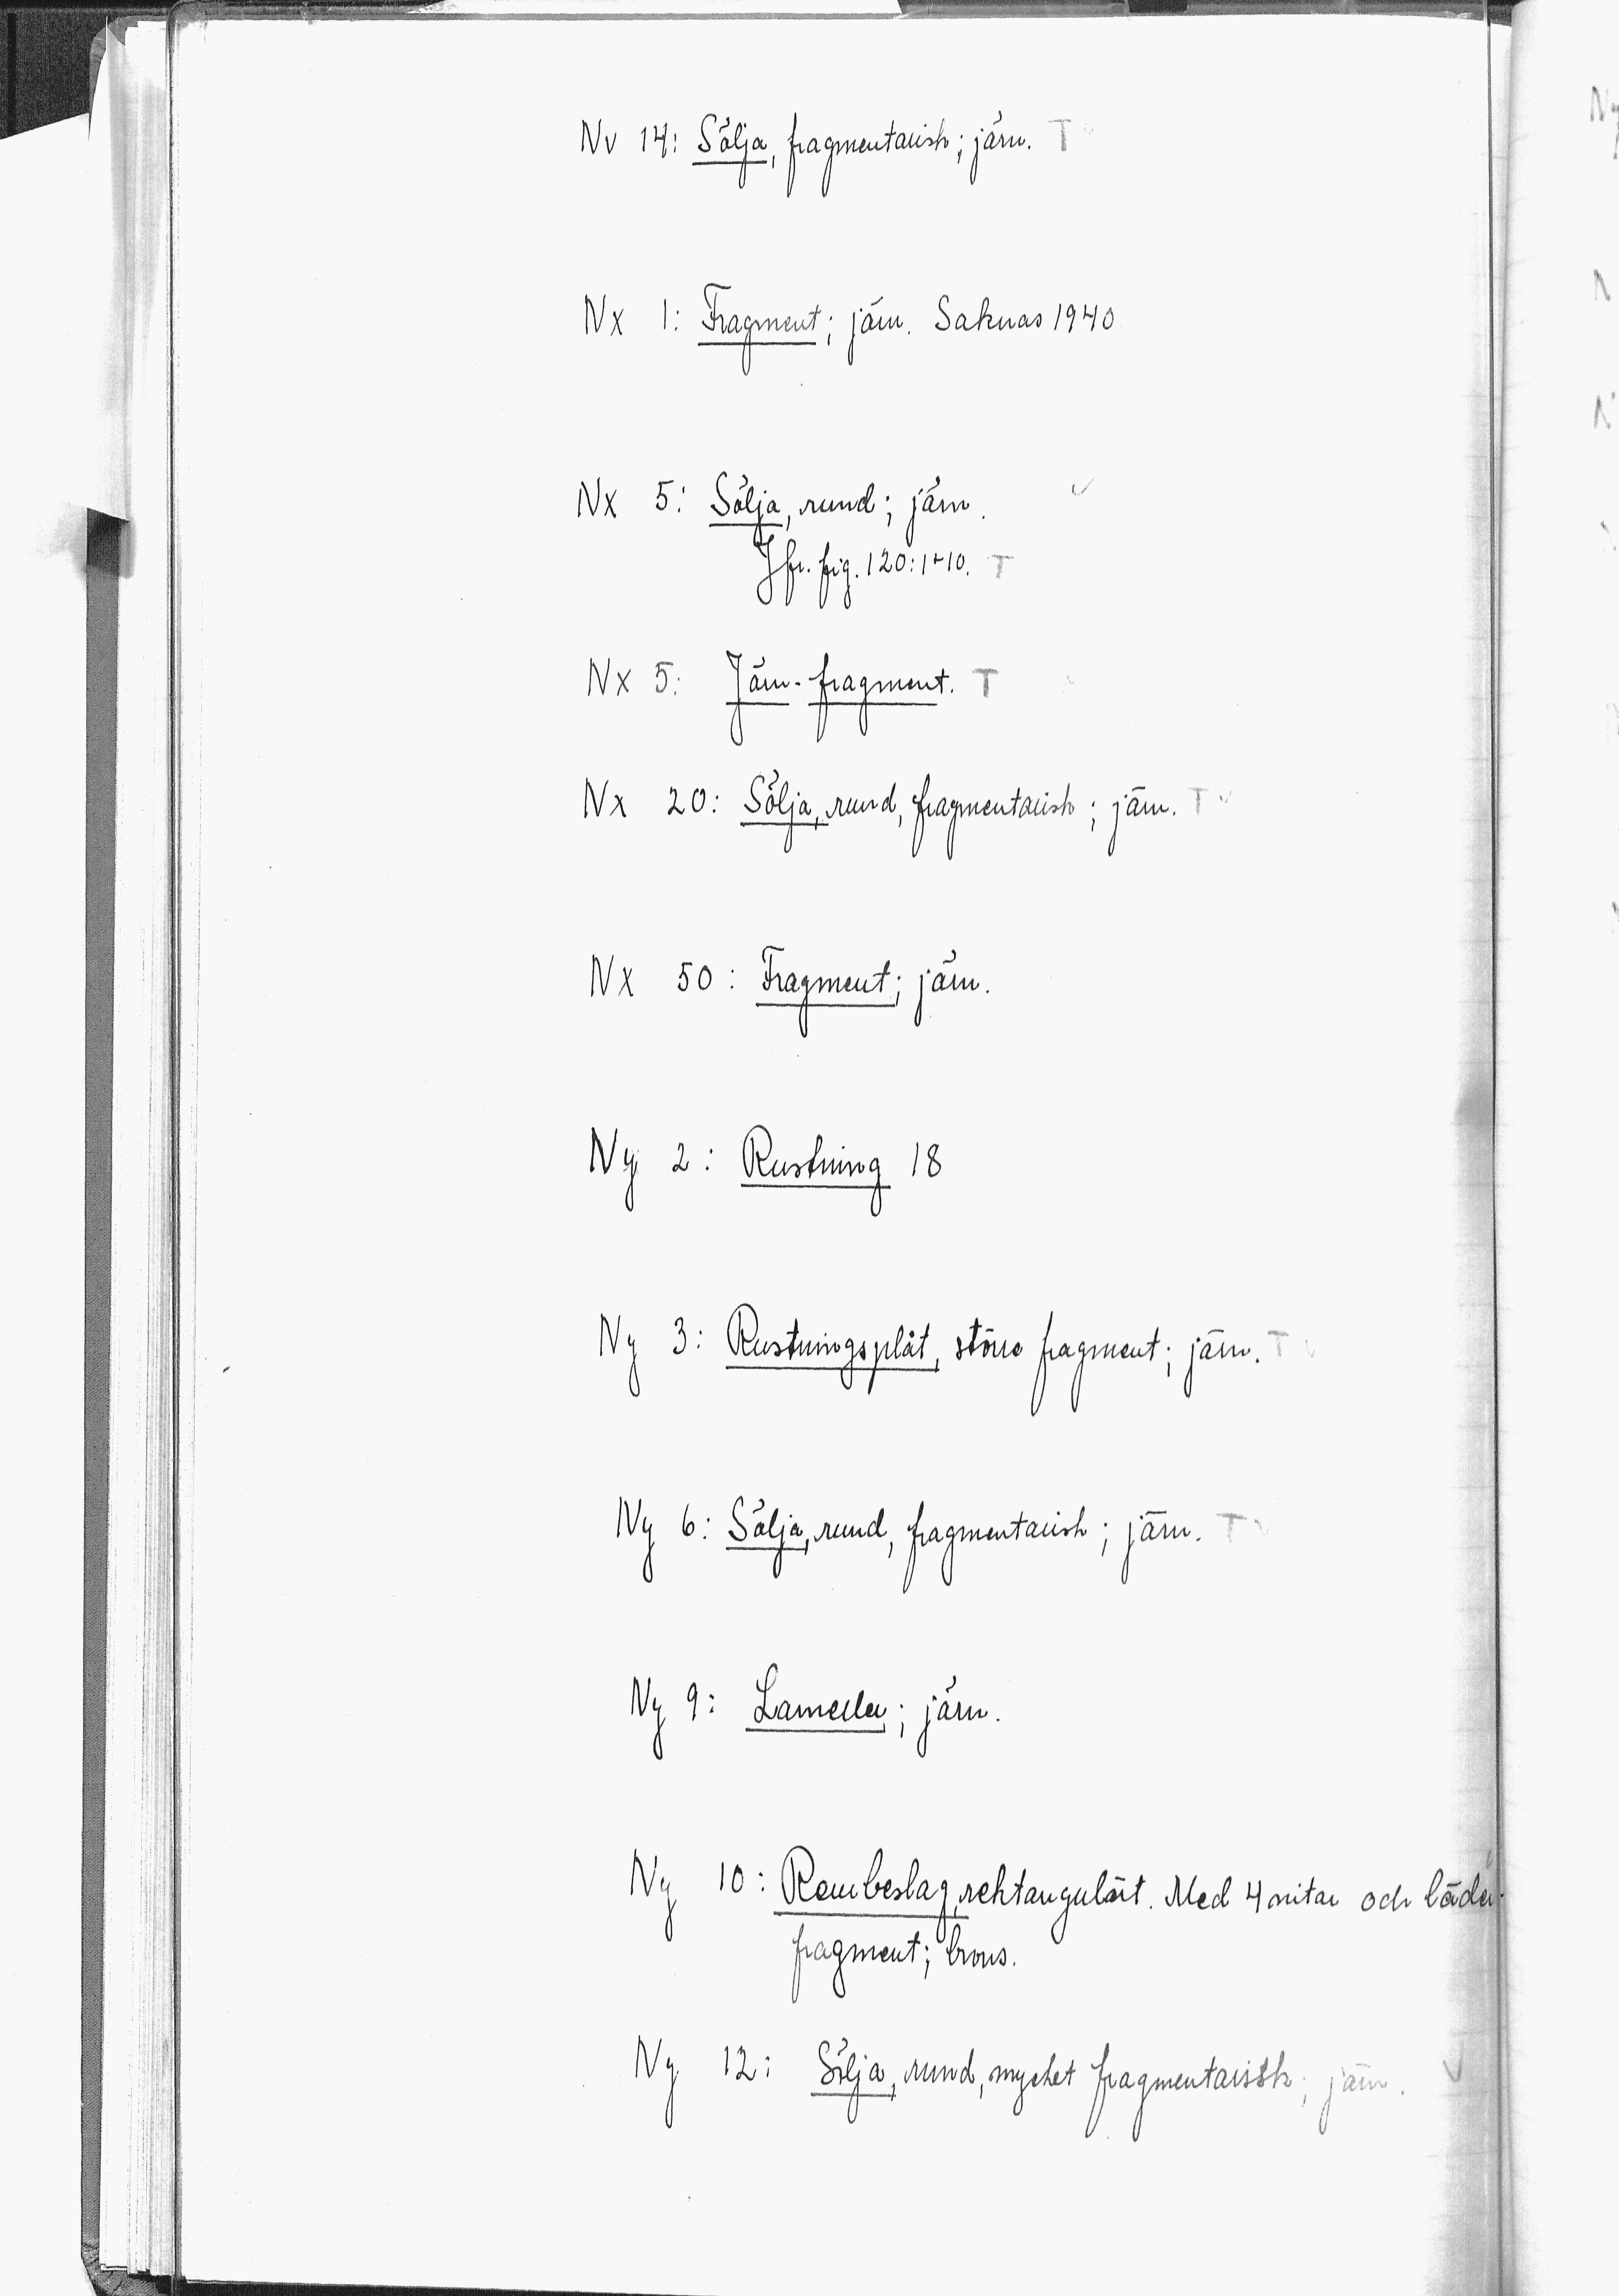 Nv 14: Sölja, fragmentarisk; järn. T
Nx 1: Fragment; järn. Saknas 1940
Nx 5: Sölja, rund; järn. ✓
Jfr. fig. 120:1+10. T
Nx 5: Järn-fragment. T
Nx 20: Sölja, rund, fragmentarisk; järn. T ✓
Nx 50: Fragment; järn.
Ny 2: Rustning 18
Ny 3: Rustningsplåt, större fragment; järn. T ✓
Ny 6: Sölja, rund, fragmentarisk; järn. T ✓
Ny 9: Lameller; järn.
Ny 10: Rembeslag, rektangulärt. Med 4 nitar och läder-
fragment; brons.
Ny 12: Sölja, rund, mycket fragmentarisk; järn. ✓